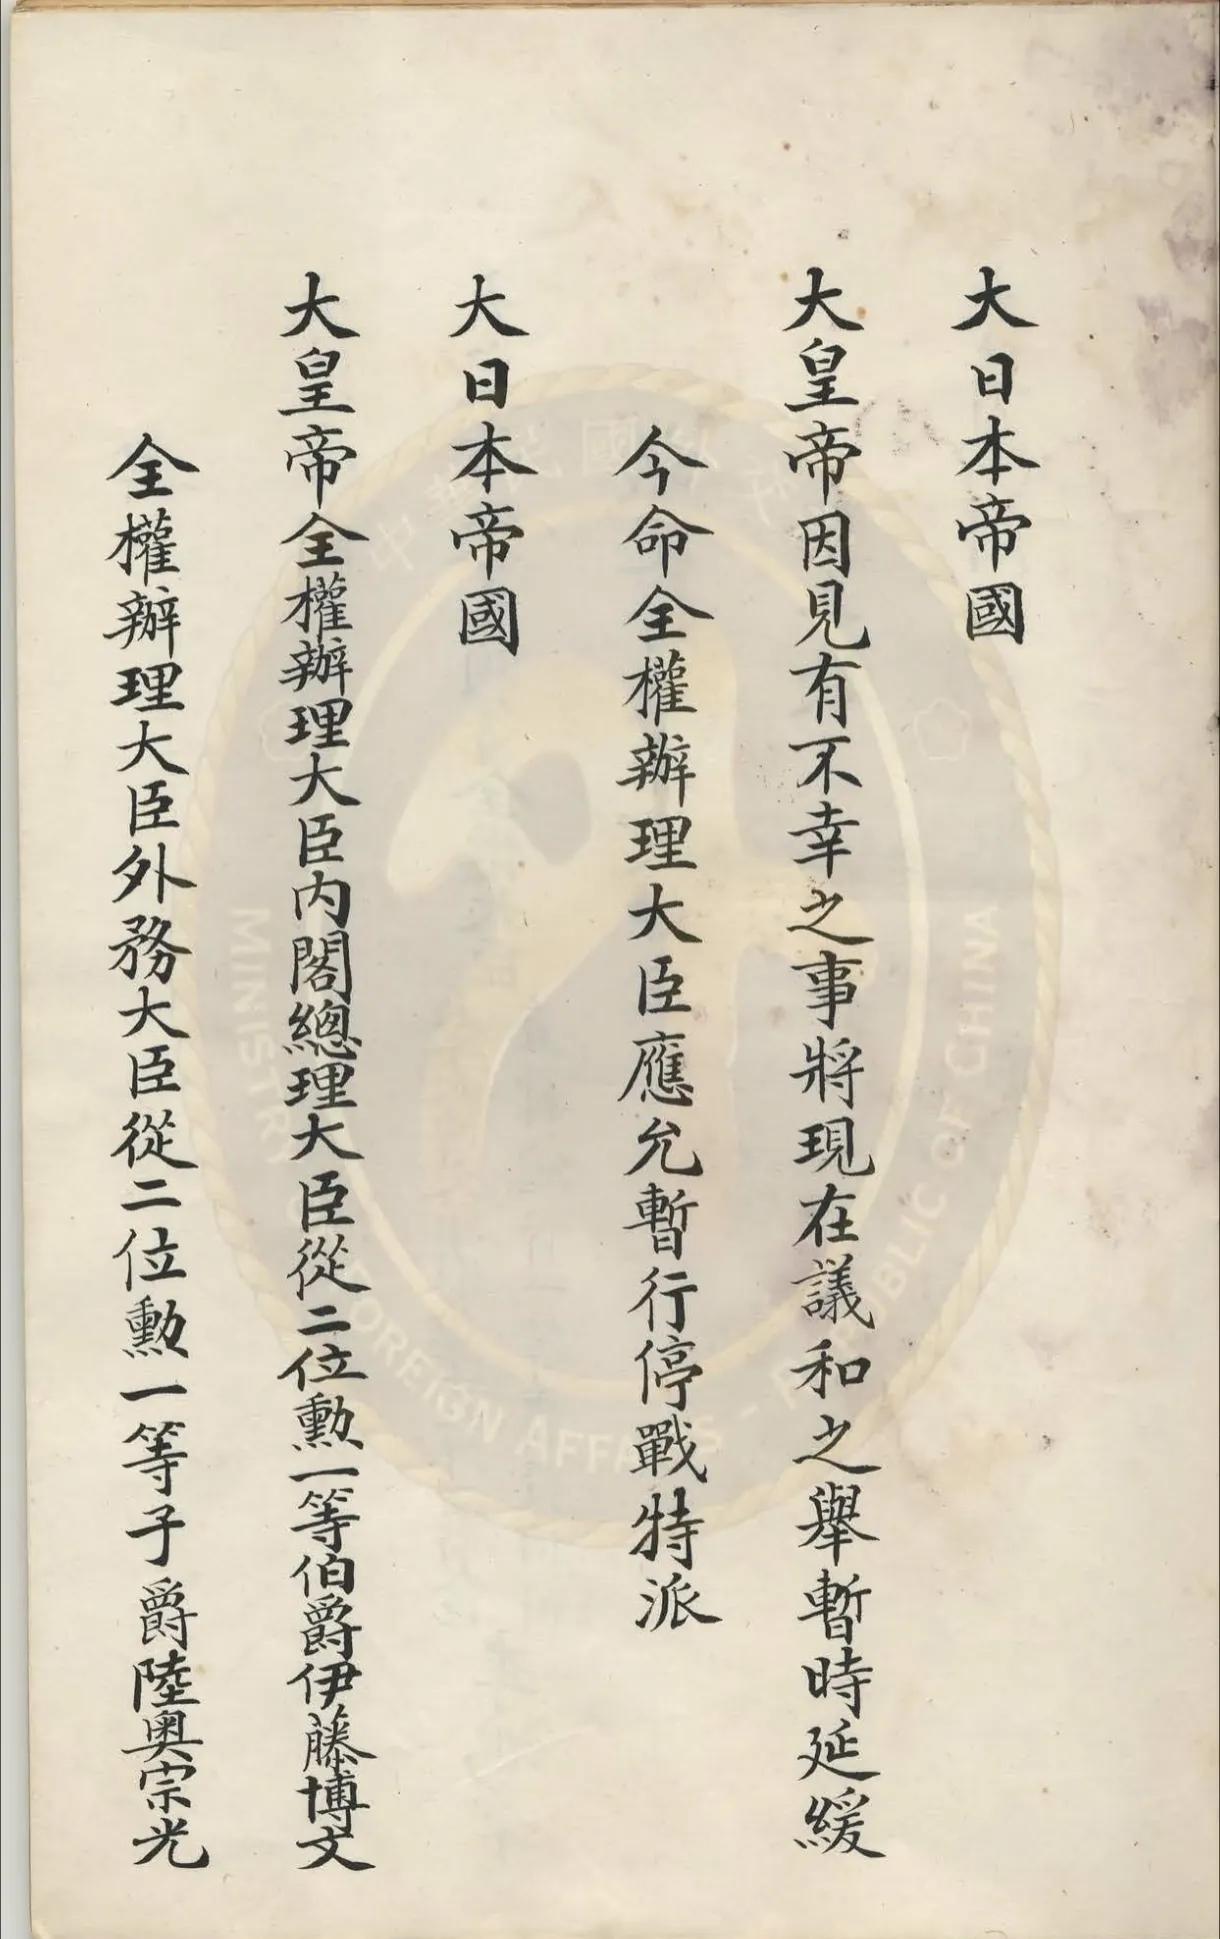 大日本帝國
大皇帝因見有不幸之事將現在議和之舉暫時延緩
今命全權辦理大臣應允暫行停戰特派
大日本帝國
大皇帝全權辦理大臣內閣總理大臣從二位勲一等伯爵伊藤博文
全權辦理大臣外務大臣從二位勲一等子爵陸奧宗光
MINISTRY OF FOREIGN AFFAIRS - REPUBLIC OF CHINA